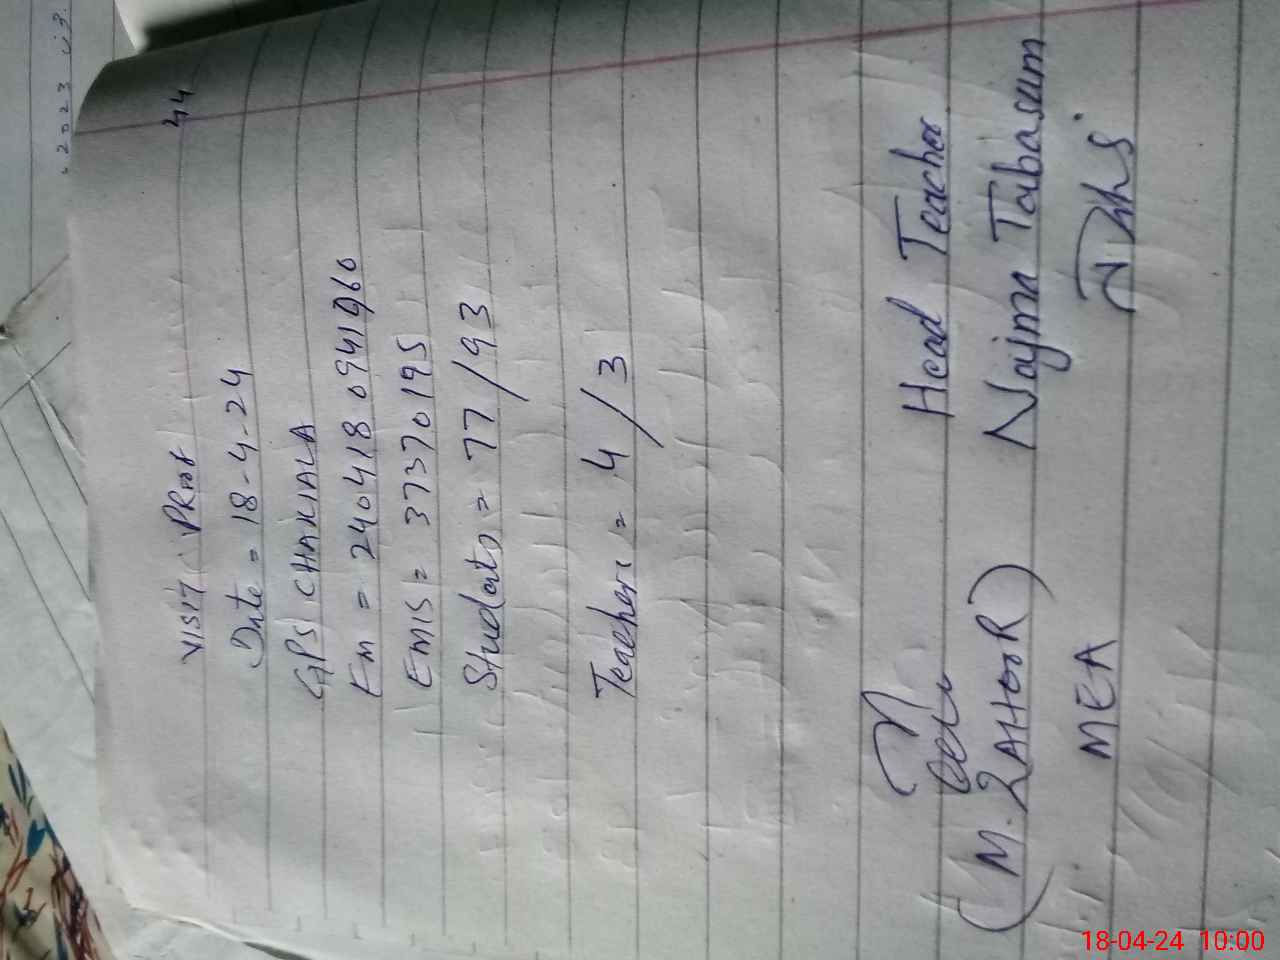 44
VISIT PRoof
Date = 18-4-24
GPS CHAKIALA
Em = 240418 0941960
EMIS = 37370195
Students = 77/93
Teachers = 4/3
Head Teacher
(M. ZAHOOR) Najma Tabasum
MEA
2023
18-04-24 10:00